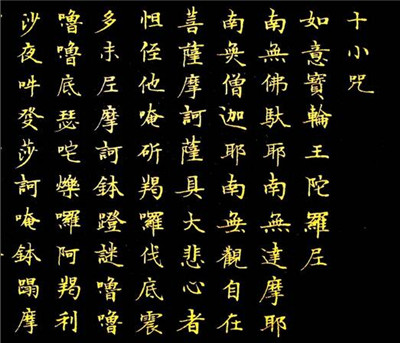 十小咒
如意寶輪王陀羅尼
南無佛馱耶南無達摩耶
南無僧迦耶南無觀自在
菩薩摩訶薩具大悲心者
怛侄他唵斫羯囉伐底震
多未尼摩訶鉢蹬謎嚕嚕
嚕嚕底瑟咤爍囉阿羯利
沙夜吽癹莎訶唵鉢蹋摩